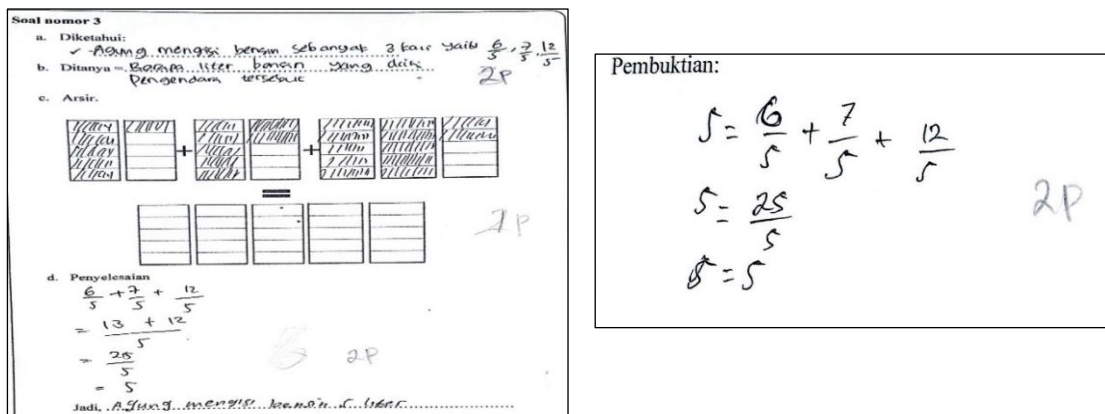 Soal nomor 3
a. Diketahui:
✓ - Agung mengisi bensin sebanyak 3 kali yaitu 6/5, 7/5, 12/5
b. Ditanya = Berapa liter bensin yang diisi
Pengendara tersebut
2P
c. Arsir.
+ +
=
1P
d. Penyelesaian
6/5 + 7/5 + 12/5
= 13 + 12 / 5
= 25/5
= 5
2P
Jadi, Agung mengisi bensin 5 liter
Pembuktian:
5 = 6/5 + 7/5 + 12/5
5 = 25/5
5 = 5
2P